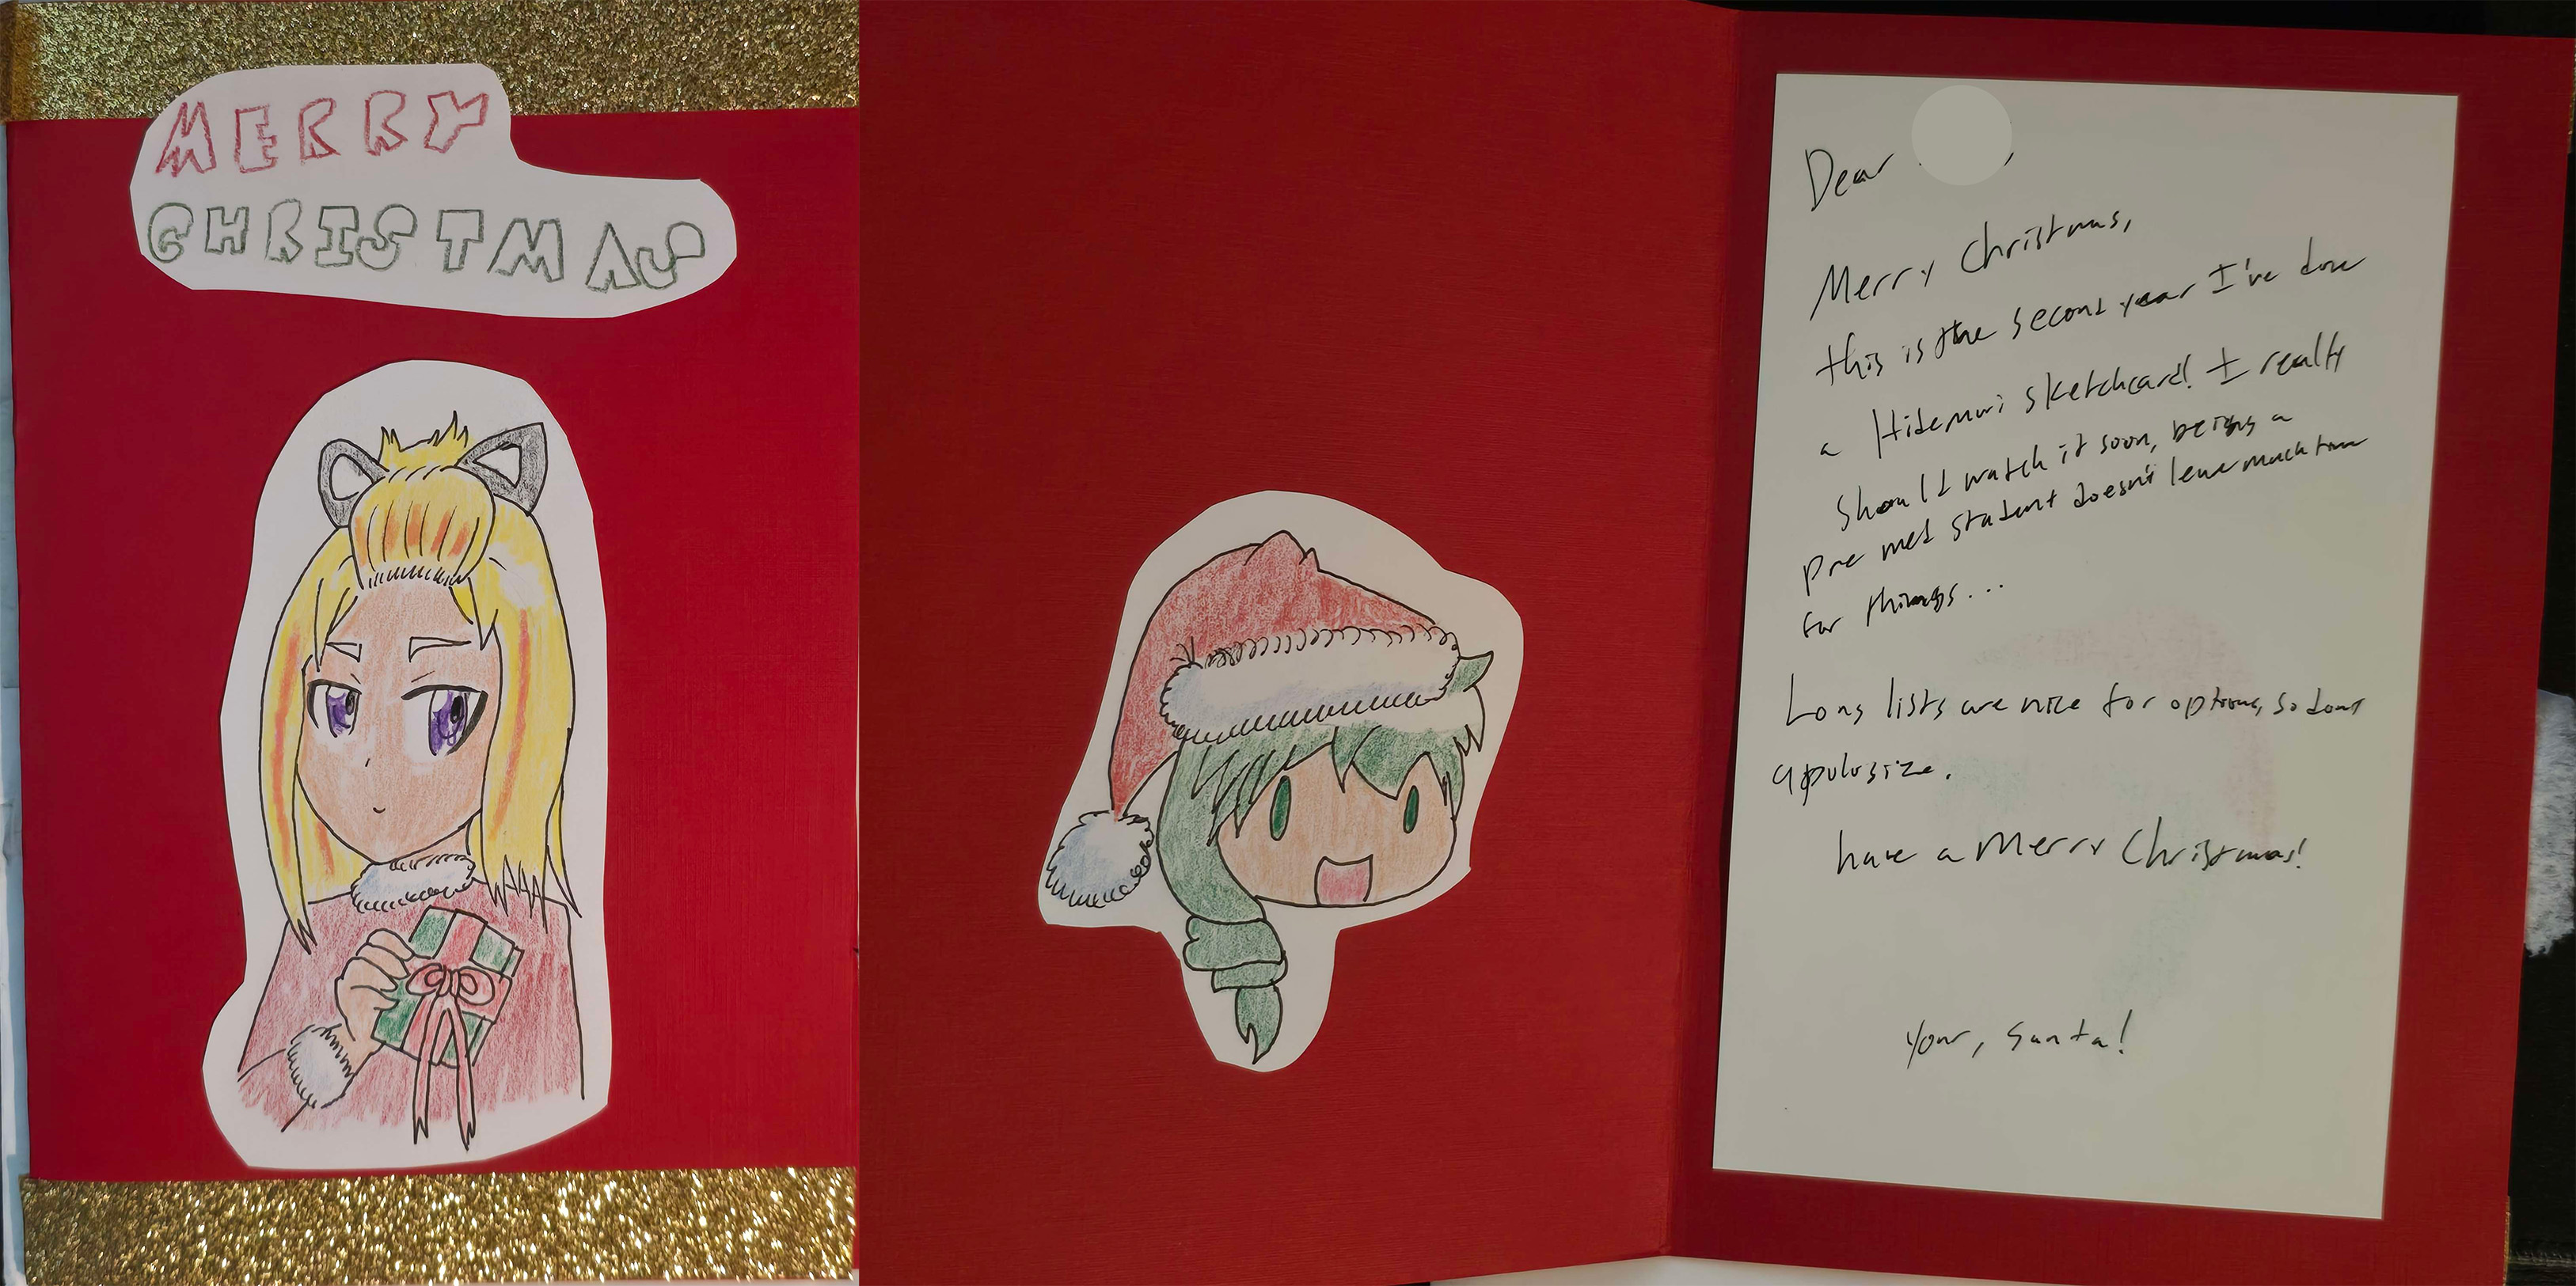 MERRY
CHRISTMAS
Dear ,
Merry Christmas,
this is the second year I've done
a Hidemari sketchcard! I really
should watch it soon, being a
pre med student doesn't leave much time
for things...
Long lists are nice for options, so dont
apologize.
have a Merry Christmas!
Your, Santa!